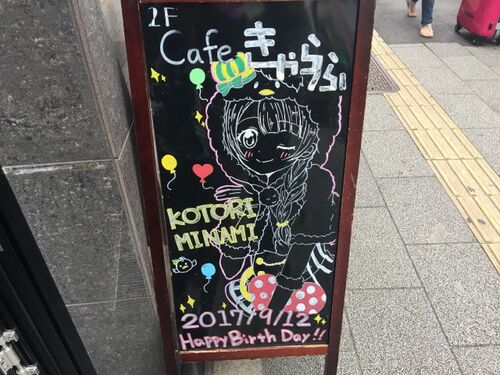 2F
Cafe きゃらふ
KOTORI
MINAMI
2017/9/12
Happy Birth Day!!